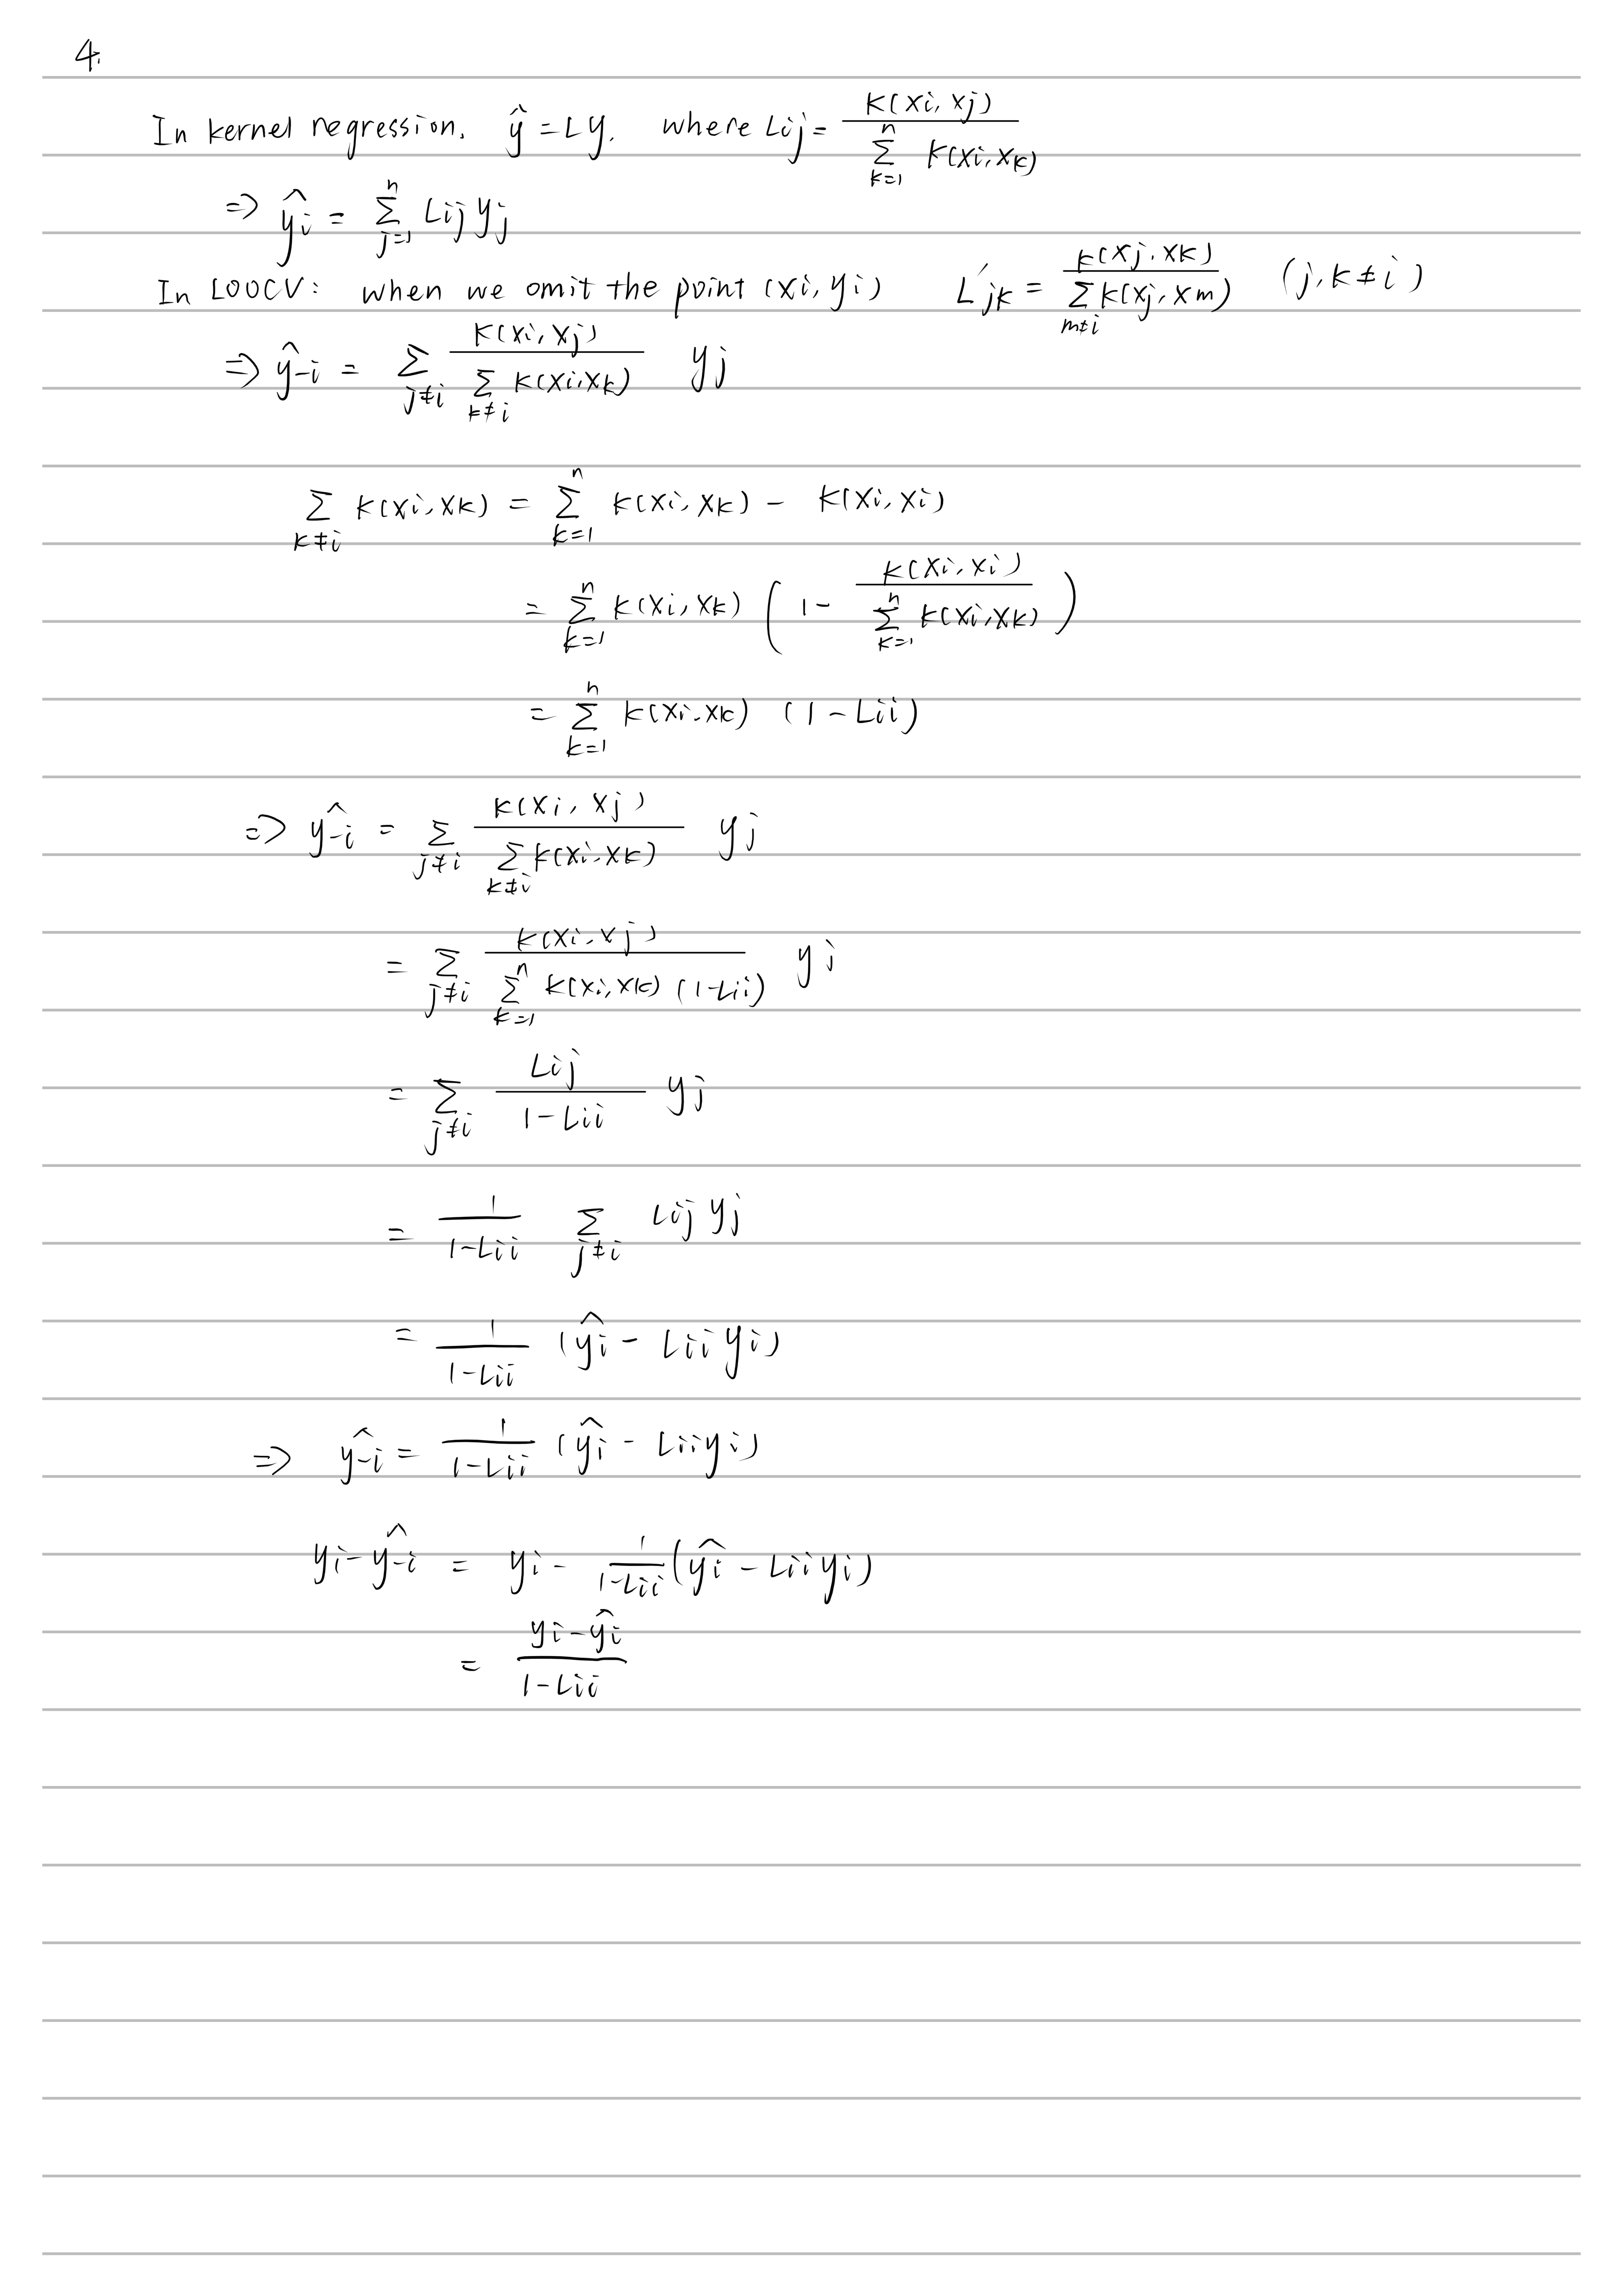 4.
In kernel regression, ŷ = Ly, where Lij = K(xi, xj) / Σ_{k=1}^{n} K(xi, xk)
⇒ ŷi = Σ_{j=1}^{n} Lij yj
In LOOCV: when we omit the point (xi, yi) L'jk = K(xj, xk) / Σ_{m≠i} K(xj, xm) (j, k ≠ i)
⇒ ŷ-i = Σ_{j≠i} K(xi, xj) / Σ_{k≠i} K(xi, xk) yj
Σ_{k≠i} K(xi, xk) = Σ_{k=1}^{n} K(xi, xk) - K(xi, xi)
= Σ_{k=1}^{n} K(xi, xk) ( 1 - K(xi, xi) / Σ_{k=1}^{n} K(xi, xk) )
= Σ_{k=1}^{n} K(xi, xk) (1 - Lii)
⇒ ŷ-i = Σ_{j≠i} K(xi, xj) / Σ_{k≠i} K(xi, xk) yj
= Σ_{j≠i} K(xi, xj) / Σ_{k=1}^{n} K(xi, xk) (1-Lii) yj
= Σ_{j≠i} Lij / 1-Lii yj
= 1 / 1-Lii Σ_{j≠i} Lij yj
= 1 / 1-Lii (ŷi - Lii yi)
⇒ ŷ-i = 1 / 1-Lii (ŷi - Lii yi)
yi - ŷ-i = yi - 1 / 1-Lii (ŷi - Lii yi)
= yi - ŷi / 1-Lii